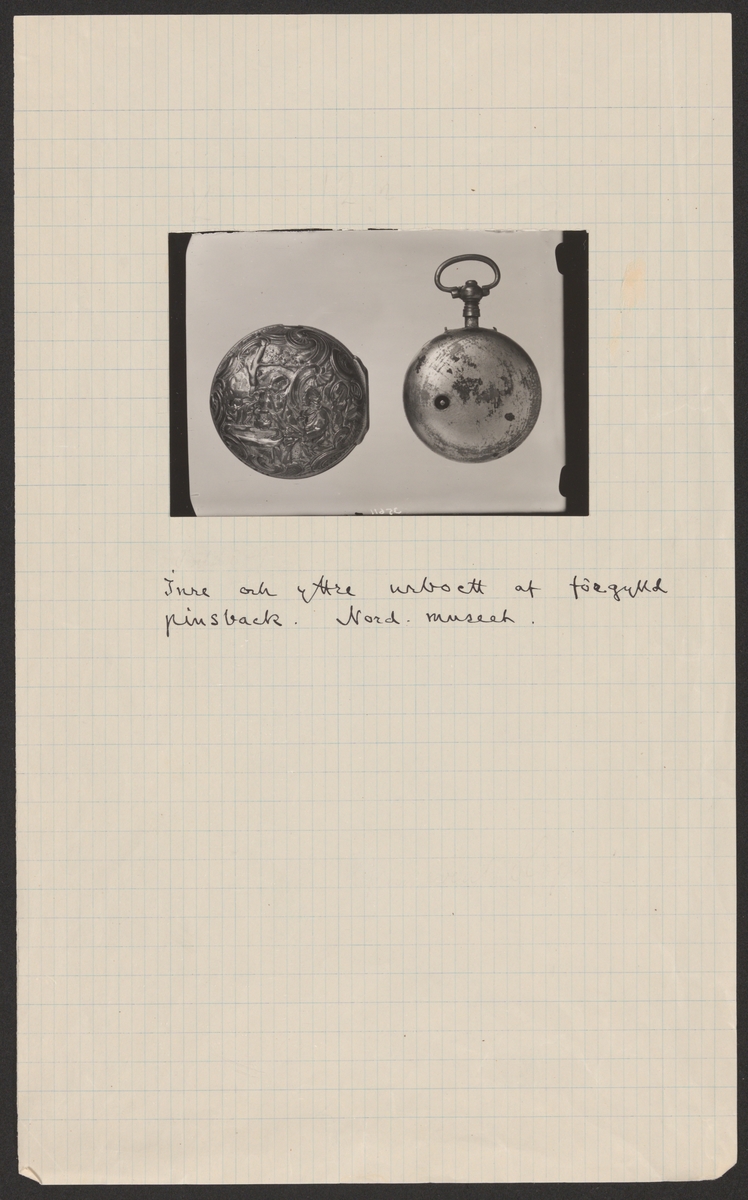 Inre och yttre urboett af förgylld
pinsback. Nord. museet.